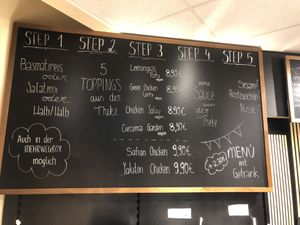 STEP 1
Basmatireis
oder
Salatmix
oder
Halb/Halb
Auch in der
MEHRWEGBOX
möglich
STEP 2
5
TOPPINGS
aus der
Theke
STEP 3
Lemongrass
Tofu 8,90€
Green Chicken
Curry 8,90€
Chicken 8,90€
Curcuma Garden 8,90€
vegan
Safran Chicken 9,90€
Yakitori Chicken 9,90€
STEP 4
eine
SAUCE
aus
der
Theke
STEP 5
Sesam?
Röstzwiebeln?
Nüsse?
+2,90€
MENÜ
mit
Getränk